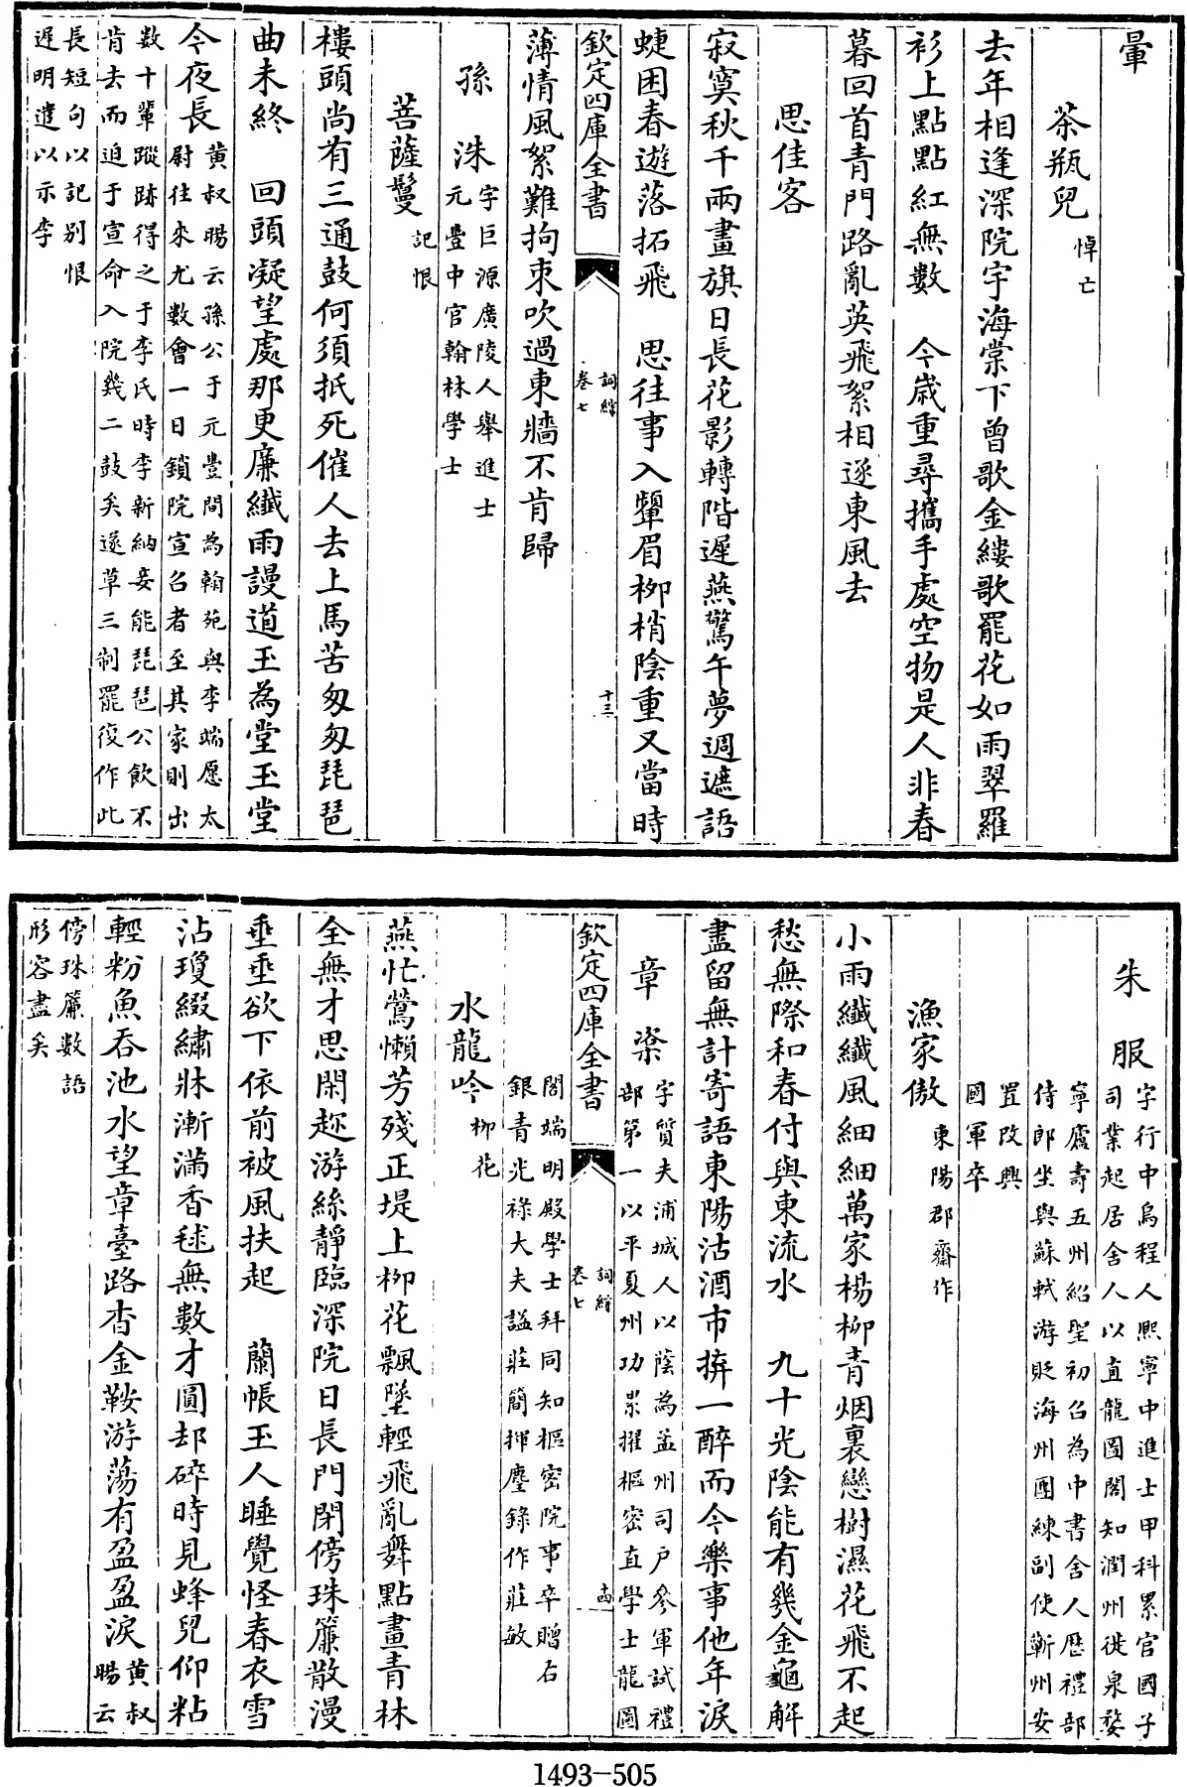 暈
茶瓶兒 悼亡
去年相逢深院宇海棠下曾歌金縷歌罷花如雨翠羅
衫上點點紅無數 今歲重尋攜手處空物是人非春
暮回首青門路亂英飛絮相逐東風去
思佳客
寂寞秋千兩畫旗日長花影轉階遲燕驚午夢週遮語
蜨困春遊落拓飛 思往事入顰眉柳梢陰重又當時
欽定四庫全書 詞綜 卷七 十三
薄情風絮難拘束吹過東牆不肯歸
孫洙 字巨源廣陵人舉進士
元豐中官翰林學士
菩薩鬘 記恨
樓頭尚有三通鼓何須抵死催人去上馬苦匆匆琵琶
曲未終 回頭凝望處那更廉纖雨謾道玉為堂玉堂
今夜長 黄叔暘云孫公于元豐間為翰苑與李端愿太
尉往來尤數會一日鎖院宣召者至其家則出
數十輩蹤跡得之于李氏時李新納妾能琵琶公飲不
肯去而迫于宣命入院幾二鼓矣遂草三制罷復作此
長短句以記别恨
遲明遣以示李
朱服 字行中烏程人熙寧中進士甲科累官國子
司業起居舍人以直龍圖閣知潤州徙泉婺
寧廬壽五州紹聖初召為中書舍人歷禮部
侍郎坐與蘇軾游貶海州團練副使蘄州安
置改興
國軍卒
漁家傲 東陽郡齋作
小雨纖纖風細細萬家楊柳青烟裏戀樹濕花飛不起
愁無際和春付與東流水 九十光陰能有幾金龜解
盡留無計寄語東陽沽酒市拚一醉而今樂事他年淚
章楶 字質夫浦城人以蔭為孟州司户參軍試禮
部第一以平夏州功累擢樞密直學士龍圖
欽定四庫全書 詞綜 卷七 十四
閣端明殿學士拜同知樞密院事卒贈右
銀青光祿大夫謚莊簡揮麈錄作莊敏
水龍吟 柳花
燕忙鶯懶芳殘正堤上柳花飄墜輕飛亂舞點畫青林
全無才思閒趂游絲靜臨深院日長門閉傍珠簾散漫
垂垂欲下依前被風扶起 蘭帳玉人睡覺怪春衣雪
沾瓊綴繡牀漸滿香毬無數才圓却碎時見蜂兒仰粘
輕粉魚吞池水望章臺路杳金鞍游蕩有盈盈淚 黄叔
暘云
傍珠簾數語
形容盡矣
1493-505